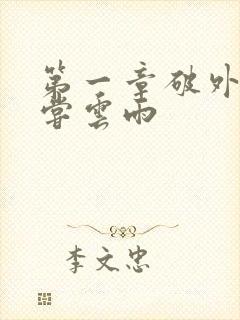 第一章破外
嘗雲雨
李文忠